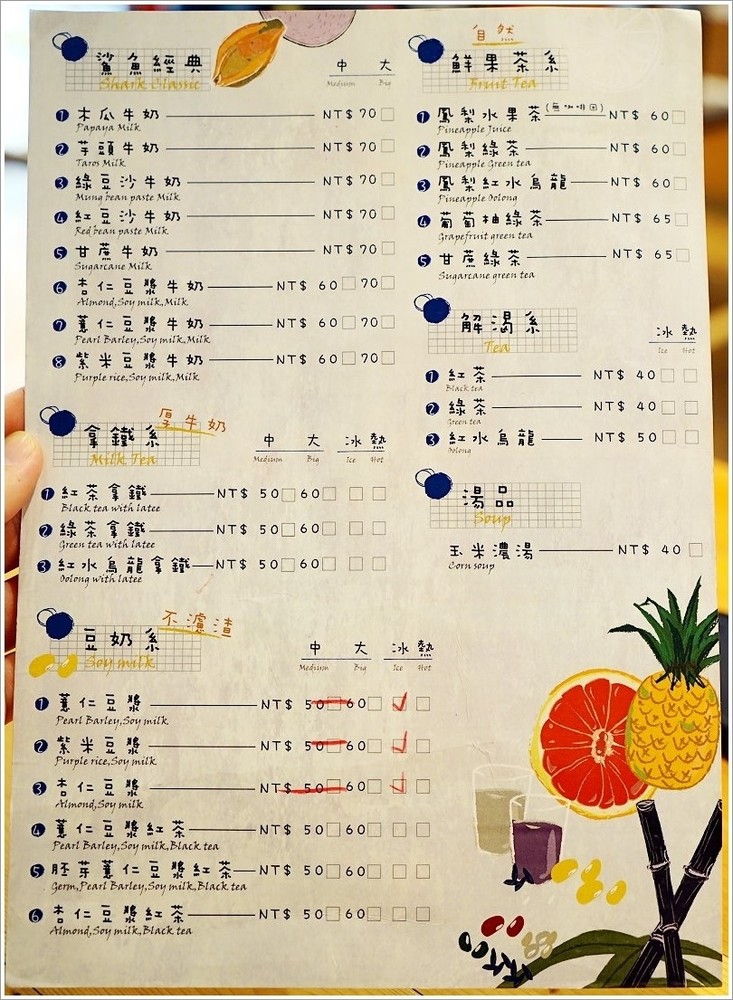 鯊魚經典
Shark Classic
中 大
Medium Big
1 木瓜牛奶 NT$ 70
Papaya Milk
2 芋頭牛奶 NT$ 70
Taros Milk
3 綠豆沙牛奶 NT$ 70
Mung bean paste Milk
4 紅豆沙牛奶 NT$ 70
Red bean paste Milk
5 甘蔗牛奶 NT$ 70
Sugarcane Milk
6 杏仁豆漿牛奶 NT$ 60 70
Almond,Soy milk,Milk
7 薏仁豆漿牛奶 NT$ 60 70
Pearl Barley,Soy milk,Milk
8 紫米豆漿牛奶 NT$ 60 70
Purple rice,Soy milk,Milk
拿鐵系 厚牛奶
Milk Tea
中 大 冰 熱
Medium Big Ice Hot
1 紅茶拿鐵 NT$ 50 60
Black tea with latee
2 綠茶拿鐵 NT$ 50 60
Green tea with latee
3 紅水烏龍拿鐵 NT$ 50 60
Oolong with latee
豆奶系 不濾渣
Soy milk
中 大 冰 熱
Medium Big Ice Hot
1 薏仁豆漿 NT$ 50 60
Pearl Barley,Soy milk
2 紫米豆漿 NT$ 50 60
Purple rice,Soy milk
3 杏仁豆漿 NT$ 50 60
Almond,Soy milk
4 薏仁豆漿紅茶 NT$ 50 60
Pearl Barley,Soy milk,Black tea
5 胚芽薏仁豆漿紅茶 NT$ 50 60
Germ,Pearl Barley,Soy milk,Black tea
6 杏仁豆漿紅茶 NT$ 50 60
Almond,Soy milk,Black tea
自然
鮮果茶系
Fruit Tea
1 鳳梨水果茶(無咖啡因) NT$ 60
Pineapple Juice
2 鳳梨綠茶 NT$ 60
Pineapple Green tea
3 鳳梨紅水烏龍 NT$ 60
Pineapple Oolong
4 葡萄柚綠茶 NT$ 65
Grapefruit green tea
5 甘蔗綠茶 NT$ 65
Sugarcane green tea
解渴系
Tea
冰 熱
Ice Hot
1 紅茶 NT$ 40
Black tea
2 綠茶 NT$ 40
Green tea
3 紅水烏龍 NT$ 50
Oolong
湯品
Soup
玉米濃湯 NT$ 40
Corn soup